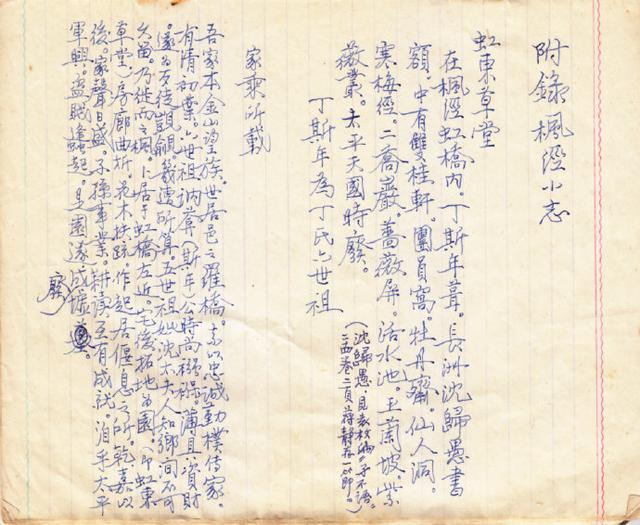 附錄楓涇小志
虹東草堂
在楓涇虹橋內。丁斯年葺。長洲沈歸愚書
額。中有雙桂軒。團員窩。牡丹齋。仙人洞。
寒梅經。二喬巖。薔薇屏。活水池。玉蘭坡。紫
薇叢。太平天國時廢。
丁斯年為丁氏六世祖
(沈歸愚，見
二頁蔣靜存一則。)
家乘所載
吾家本金山望族。世居邑之羅橋。素以忠誠勤樸傳家。
有清初葉。六世祖訥葊(斯年)公時尚襁褓。薄具資財
遂為歹徒覬覦。幾遭所算。五世祖妣沈太夫人知鄉間不可
久留。乃徙而之楓。卜居于虹橋左近。宅後拓地為園。(即虹東
草堂)房廊曲折。花木扶疏。作起居偃息之所。乾嘉以
後。家聲日盛。子孫事業。耕讀至有成就。洎乎太平
軍興。盜賊蠭起。是園遂成墟
廢